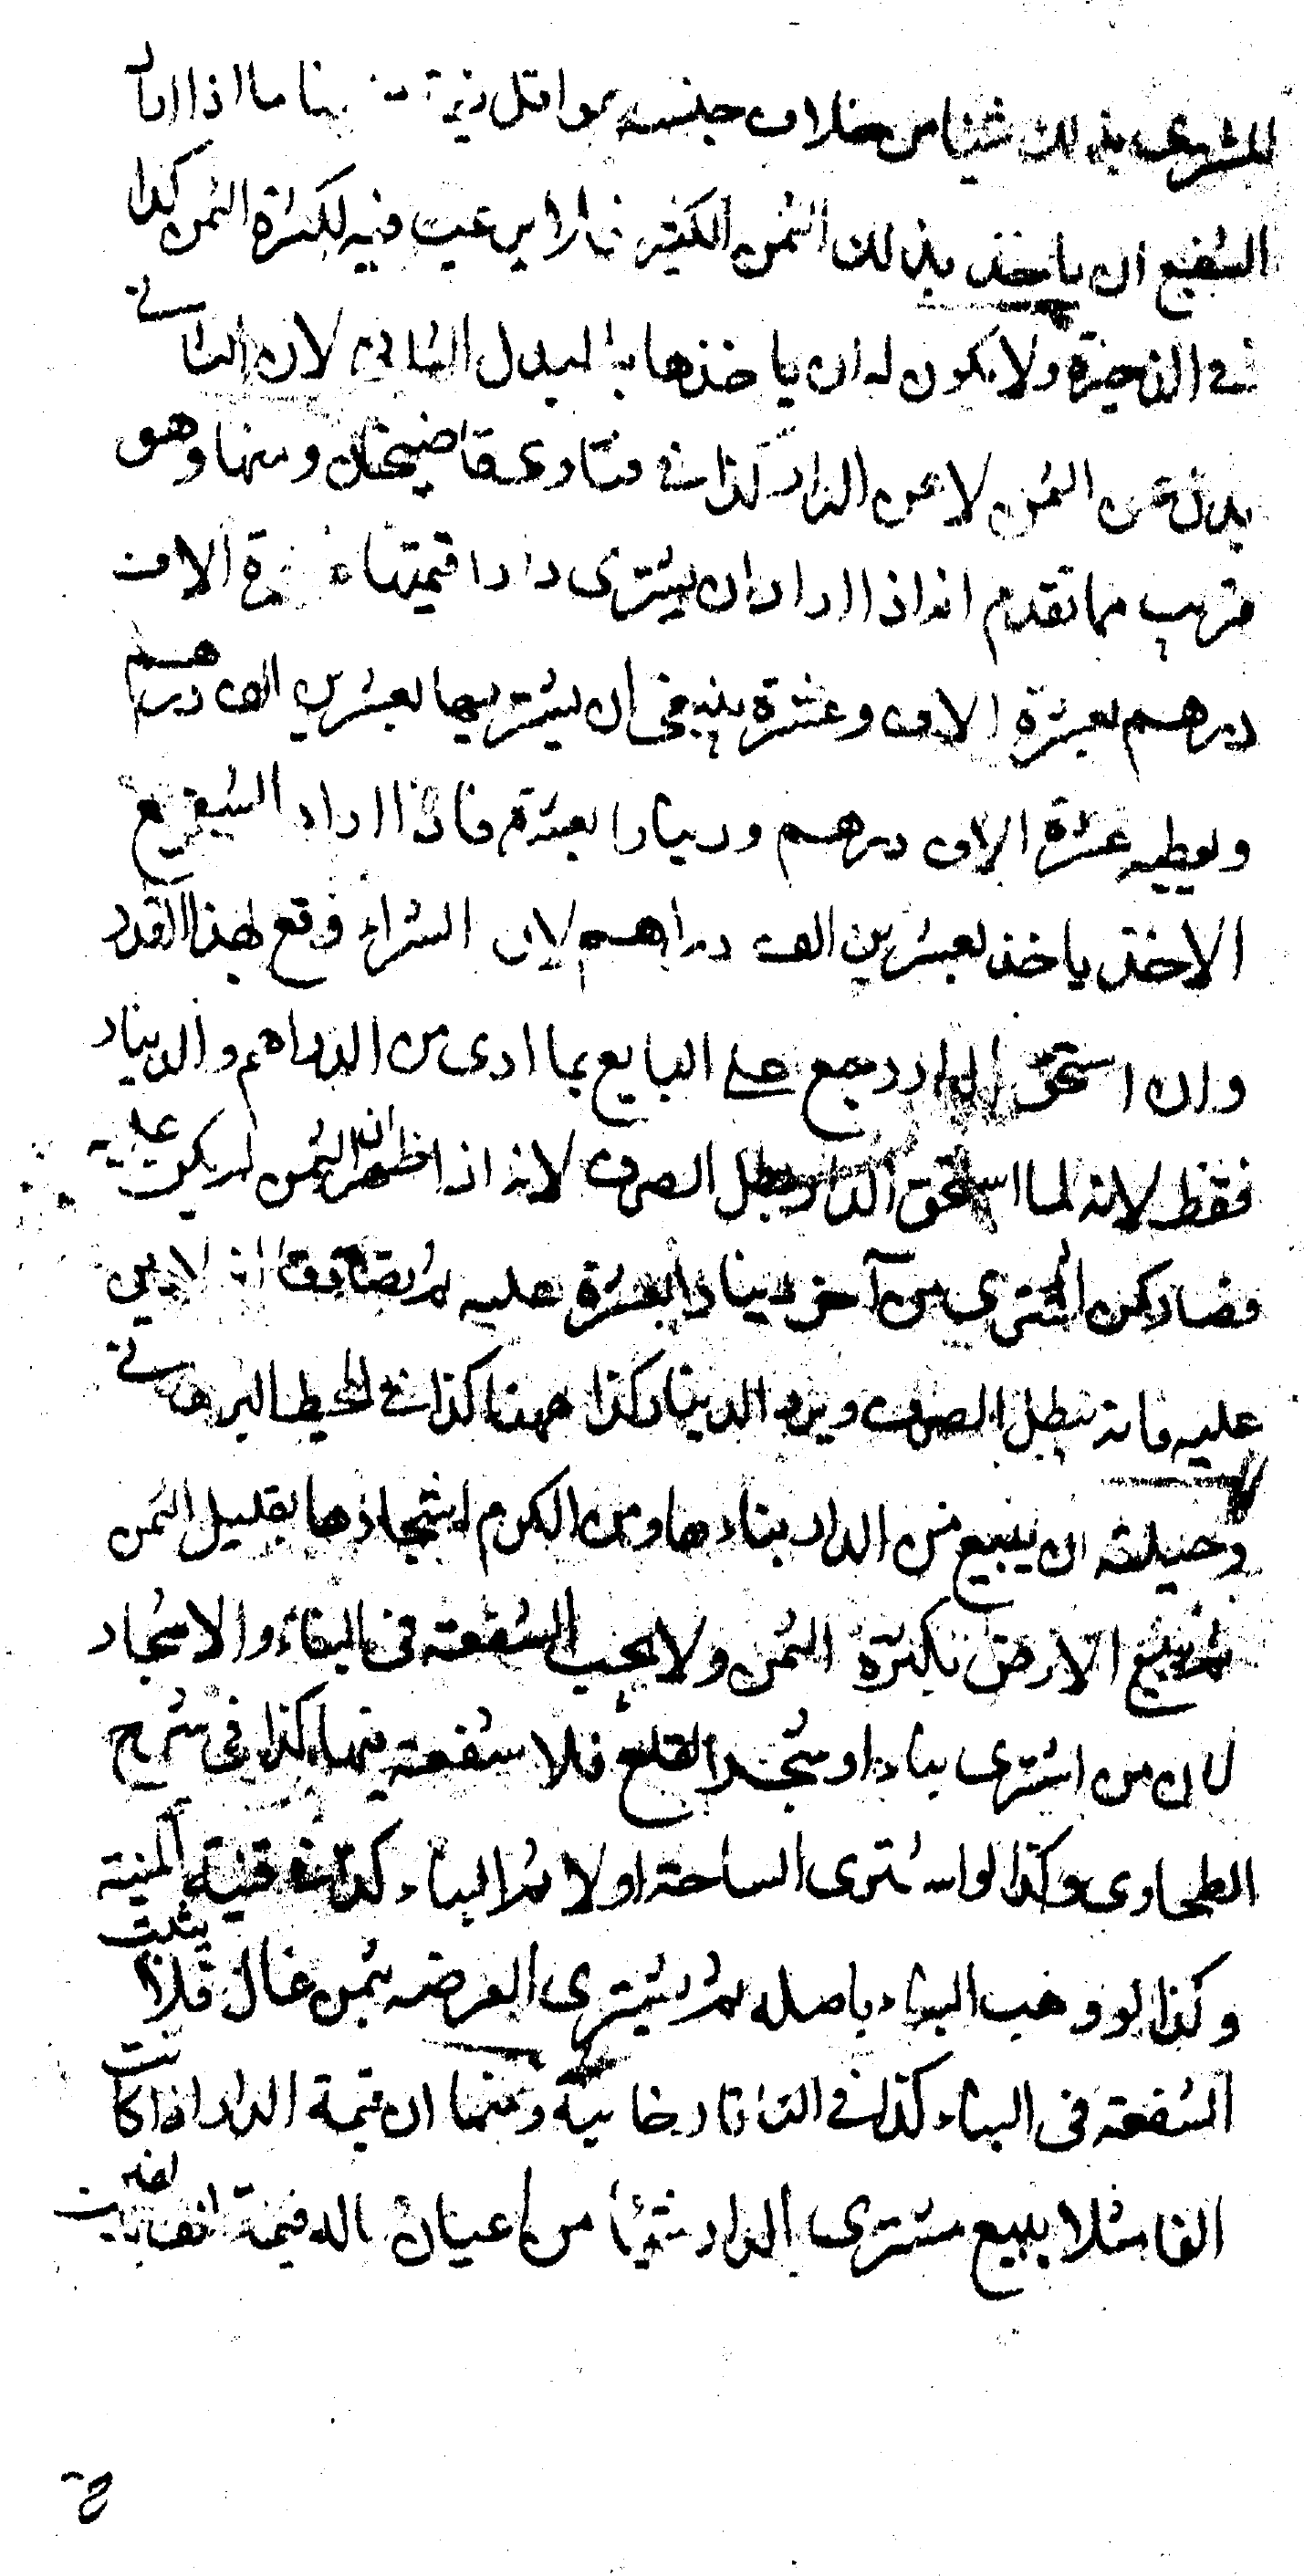 المشتري بذلك شيئا من خلاف جنسه هو اقل قيمة منها فاذا اراد
الشفيع ان ياخذ بذلك الثمن الكثير فلا يرغب فيه لكثرة الثمن كذا
في الذخيرة ولا يكون له ان ياخذها بالبدل الثاني لان الثاني
بدل عن الثمن لا عن الدار كذا في فتاوى قاضيخان ومنها وهو
قريب مما تقدم انه اذا اراد ان يشترى دارا قيمتها عشرة الاف
درهم بعشرة الاف وعشرة ينبغي ان يشتريها بعشرين الف درهم
ويعطيه عشرة الاف درهم ودينارا بعشرة فاذا اراد الشفيع
الاخذ ياخذ بعشرين الف دراهم لان الشراء وقع بهذا القدر
وان استحق الدار رجع على البايع بما ادى من الدراهم والدينار
فقط لانه لما استحق الدار بطل الصرف لانه اذا ظهر ان الثمن لم يكن عليه
فصار كمن اشترى من آخر دينارا بعشرة عليه ثم تصادقا انه لا دين
عليه فانه يبطل الصرف ويرد الدينار كذا ههنا كذا في المحيط البرهاني
وحيلته ان يبيع من الدار بناءها ومن الكرم اشجارها بقليل الثمن
ثم يبيع الارض بكثرة الثمن ولا يجب الشفعة في البناء والاشجار
لان من اشترى بناء او شجر القلع فلا شفعة فيها كذا في شرح
الطحاوى وكذا لو اشترى الساحة اولا ثم البناء كذا في قنية المنية
وكذا لو وهب البناء باصله ثم يشترى العرصه بثمن غال فلا يثبت
الشفعة في البناء كذا في التاتارخانية ومنها ان قيمة الدار اذا كانت
الفا مثلا يبيع مشترى الدار شيئا من اعيان ماله قيمة